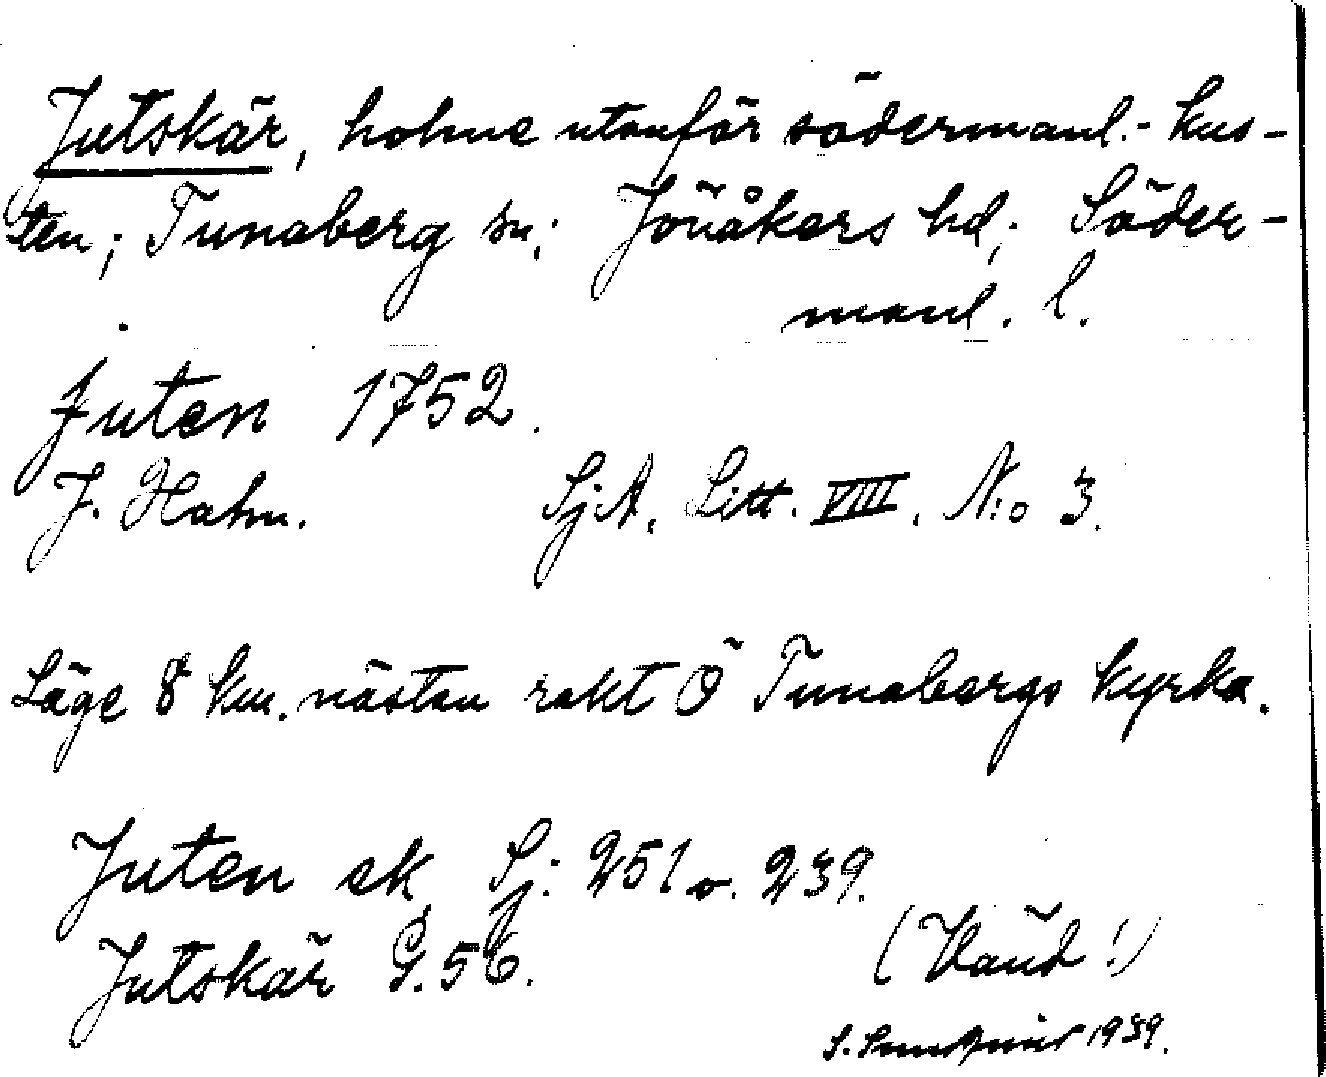 Jutskär, holme utanför södermanl.- kus-
ten; Tunaberg sn; Jönåkers hd; Söder-
manl. l.
Juten 1752.
J. Hahn. SjA. Litt. VIII. N:o 3.
Läge 8 km. nästan rakt Ö Tunabergs kyrka.
Juten sk Sj: 251 o. 239.
Jutskär G. 56. (Vänd!)
S. 1939.